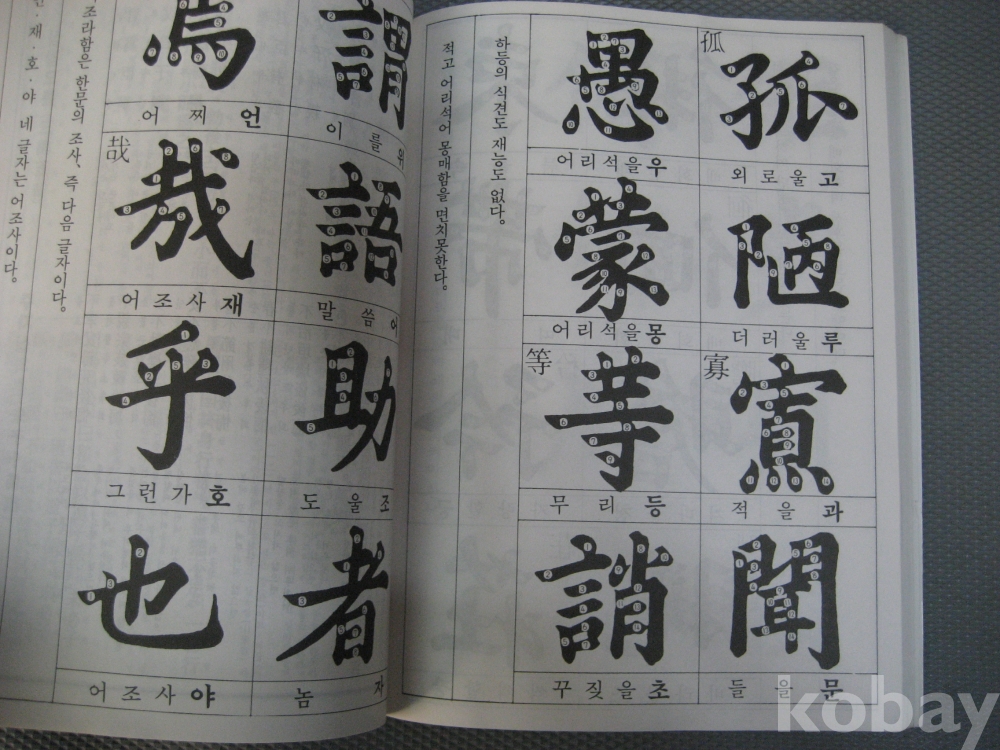 孤
孤
외로울고
陋
더러울루
寡
寡
적을과
聞
들을문
愚
어리석을우
蒙
어리석을몽
等
等
무리등
誚
꾸짖을초
하등의 식견도 재능도 없다.
적고 어리석어 몽매함을 면치못한다.
謂
이를위
語
말씀어
助
도울조
者
놈자
焉
어찌언
哉
哉
어조사재
乎
그런가호
也
어조사야
조라함은 한문의 조사, 즉 다음 글자이다.
언·재·호·야 네 글자는 어조사이다.
kobay